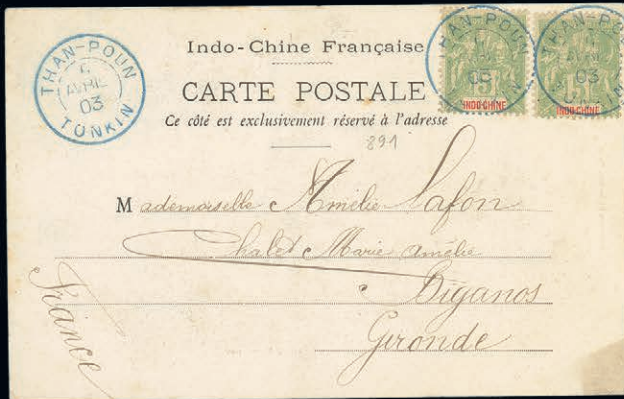 THAN-POUN
AVRIL
03
TONKIN
Indo-Chine Française
CARTE POSTALE
Ce côté est exclusivement réservé à l'adresse
891
THAN-POUN
03
5
INDO-CHINE
THAN-POUN
AVRIL
03
5
INDO-CHINE
Mademoiselle Amélie Lafon
Chalet Marie Amélie
Biganos
Gironde
France